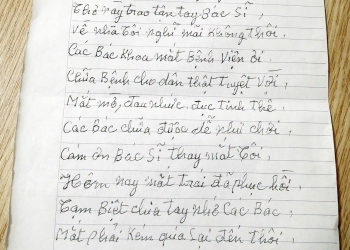 Thơ này trao tận tay Bác Sĩ,
Về nhà Tôi nghĩ mãi không thôi,
Các Bác khoa mắt Bệnh Viện ơi
Chữa Bệnh cho dân thật Tuyệt Vời,
Mắt mờ, đau nhức, đục tinh thể,
Các Bác chữa được dễ như chơi,
Cám ơn Bác Sĩ thay mắt Tôi,
Hôm nay mắt trái đã phục hồi,
Tạm Biệt chia tay nhớ Các Bác,
Mắt phải kém qúa lại đến thôi,